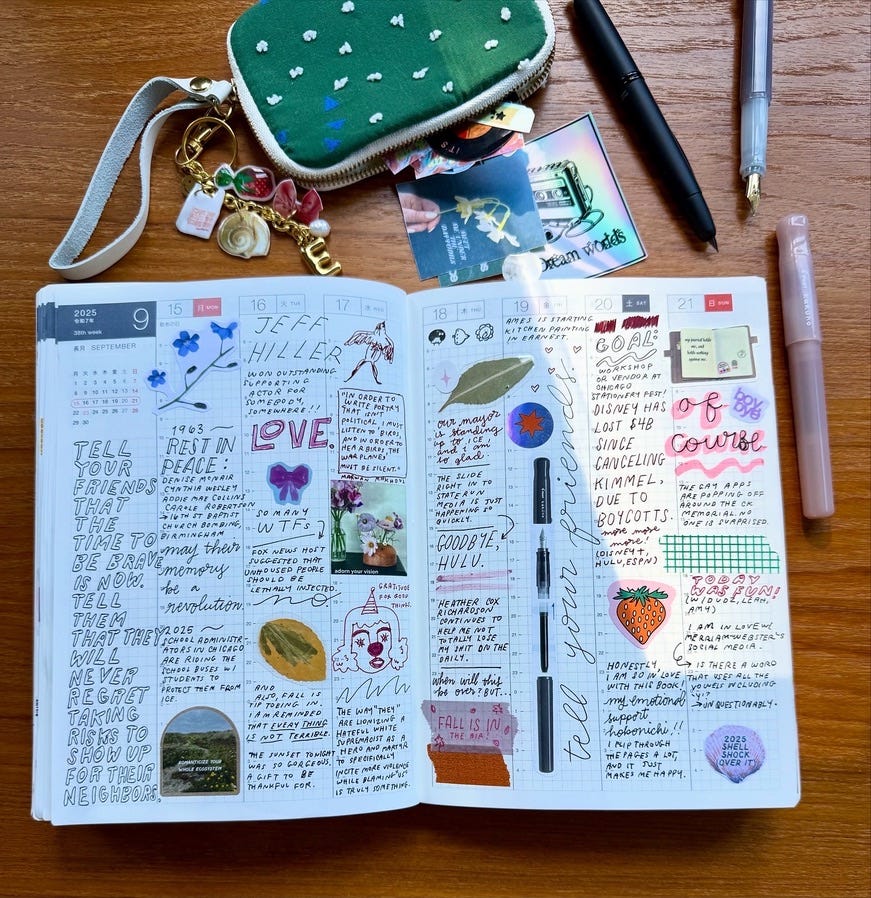 IT'S
Dream worlds
E
2025
令和7年
9
38th week
長月 SEPTEMBER
月 火 水 木 金 土 日
1 2 3 4 5 6 7
8 9 10 11 12 13 14
15 16 17 18 19 20 21
22 23 24 25 26 27 28
29 30
TELL
YOUR
FRIENDS
THAT
THE
TIME TO
BE BRAVE
IS NOW.
TELL
THEM
THAT THEY
WILL
NEVER
REGRET
TAKING
RISKS TO
SHOW UP
FOR THEIR
NEIGHBORS.
15 月 MON
敬老の日
1963
REST IN
PEACE:
DENISE MCNAIR
CYNTHIA WESLEY
ADDIE MAE COLLINS
CAROLE ROBERTSON
16TH ST BAPTIST
CHURCH BOMBING,
BIRMINGHAM
may their
memory
be a
revolution.
2025
SCHOOL ADMINISTR-
ATORS IN CHICAGO
ARE RIDING THE
SCHOOL BUSES W/
STUDENTS TO
PROTECT THEM FROM
ICE.
ROMANTICIZE YOUR
WHOLE ECOSYSTEM
16 火 TUE
JEFF
HILLER
WON OUTSTANDING
SUPPORTING
ACTOR FOR
SOMEBODY,
SOMEWHERE!!
LOVE
SO MANY
WTFS
FOX NEWS HOST
SUGGESTED THAT
UNHOUSED PEOPLE
SHOULD BE
LETHALLY INJECTED.
AND
ALSO, FALL IS
TIP TOEING IN.
I AM REMINDED
THAT EVERY THING
IS NOT TERRIBLE.
THE SUNSET TONIGHT
WAS SO GORGEOUS.
A GIFT TO BE
THANKFUL FOR.
17 水 WED
"IN ORDER TO
WRITE POETRY
THAT ISN'T
POLITICAL, I MUST
LISTEN TO BIRDS,
AND IN ORDER TO
HEAR BIRDS, THE
WAR PLANES
MUST BE SILENT."
MARWAN MAKHOUL
adorn your vision
GRATITUDE
FOR GOOD
THINGS.
THE WAY "THEY"
ARE LIONIZING A
HATEFUL WHITE
SUPREMACIST AS A
HERO AND MARTYR
TO SPECIFICALLY
INCITE MORE VIOLENCE
WHILE BLAMING "US"
IS TRULY SOMETHING.
18 木 THU
our mayor
is standing
up to ICE
and i am
so glad.
THE SLIDE
RIGHT IN TO
STATE RUN
MEDIA IS JUST
HAPPENING SO
QUICKLY.
GOODBYE,
HULU.
HEATHER COX
RICHARDSON
CONTINUES TO
HELP ME NOT
TOTALLY LOSE
MY SHIT ON THE
DAILY.
when will this
be over? BUT...
FALL IS IN
THE AIR!
19 金 FRI
AMES IS STARTING
KITCHEN PAINTING
IN EARNEST.
tell your friends.
20 土 SAT
GOAL:
WORKSHOP
OR VENDOR AT
CHICAGO
STATIONERY FEST!
DISNEY HAS
LOST $4B
SINCE
CANCELING
KIMMEL,
DUE TO
BOYCOTTS.
more more
more!
(DISNEY+,
HULU, ESPN)
HONESTLY,
I AM SO IN LOVE
WITH THIS BOOK!
my emotional
support
hobonichi!!
I FLIP THROUGH
THE PAGES A LOT,
AND IT JUST
MAKES ME HAPPY.
21 日 SUN
my journal holds
me, and
holds nothing
against me.
of
course
boy
bye
THE GAY APPS
ARE POPPING OFF
AROUND THE CK
MEMORIAL. NO
ONE IS SURPRISED.
TODAY
WAS FUN!
(W/ DUDZ, LEAH,
AMY)
I AM IN LOVE W/
MERRIAM-WEBSTER'S
SOCIAL MEDIA.
IS THERE A WORD
THAT USES ALL THE
VOWELS INCLUDING
Y?
UNQUESTIONABLY.
2025
SHELL
SHOCK
OVER IT)